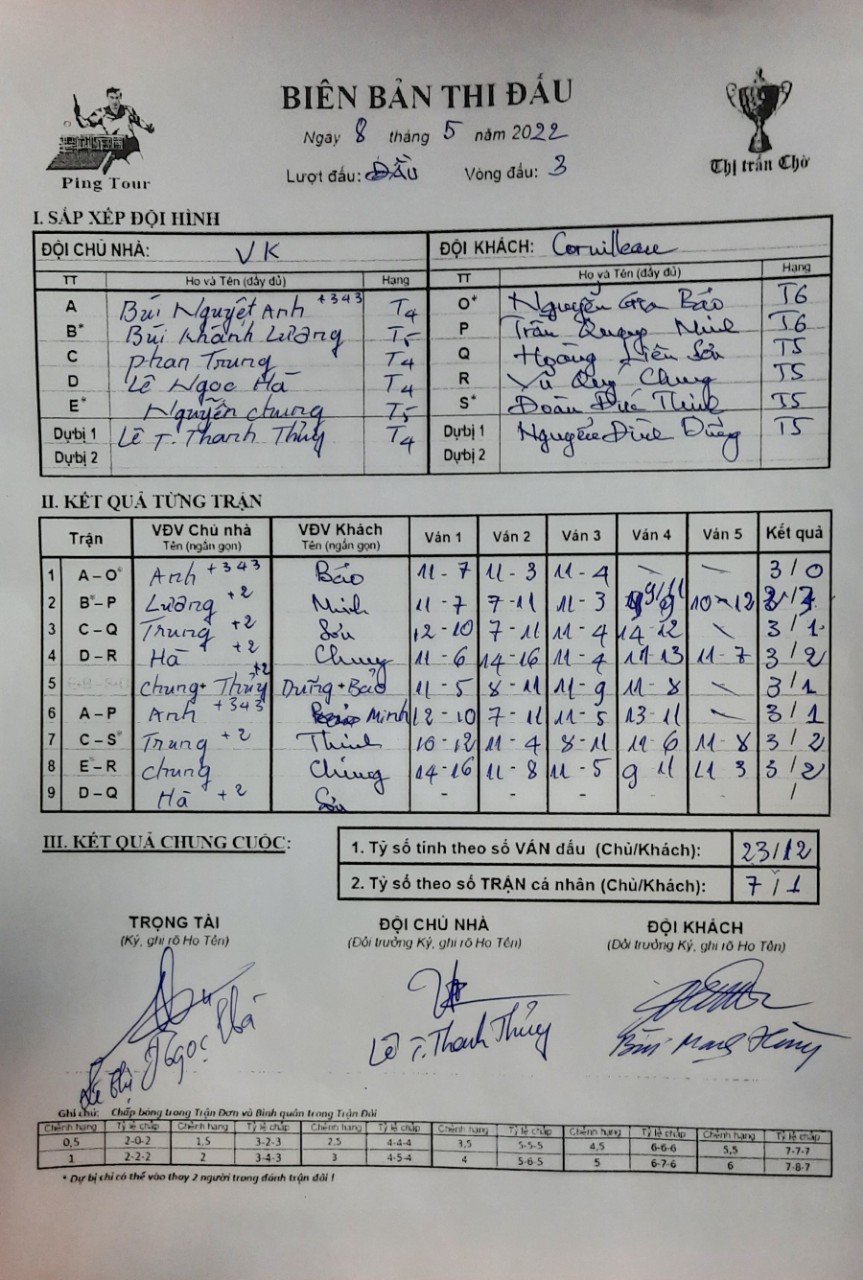 BIÊN BẢN THI ĐẤU
Ngày 8 tháng 5 năm 2022
Lượt đấu: ĐẦU Vòng đấu: 3
Ping Tour
Thị trấn Chờ
I. SẮP XẾP ĐỘI HÌNH
ĐỘI CHỦ NHÀ: VK ĐỘI KHÁCH: Cornilleau
TT Họ và Tên (đầy đủ) Hạng TT Họ và Tên (đầy đủ) Hạng
A Bùi Nguyệt Anh +343 T4 O* Nguyễn Gia Bảo T6
B* Bùi Khánh Lương T5 P Trần Quang Minh T6
C Phan Trung T4 Q Hoàng Liên Sơn T5
D Lê Ngọc Hà T4 R Vũ Quý Chung T5
E* Nguyễn Chung T5 S* Đoàn Đức Thinh T5
Dự bị 1 Lê T. Thanh Thủy T4 Dự bị 1 Nguyễn Đình Dũng T5
Dự bị 2 Dự bị 2
II. KẾT QUẢ TỪNG TRẬN
Trận VĐV Chủ nhà VĐV Khách Ván 1 Ván 2 Ván 3 Ván 4 Ván 5 Kết quả
Tên (ngắn gọn) Tên (ngắn gọn)
1 A – O* Anh +343 Bảo 11 - 7 11 - 3 11 - 4 3 / 0
2 B* – P Lương +2 Minh 11 - 7 7 - 11 11 - 3 9/11 10 - 12
3 C – Q Trung +2 Sơn 12 - 10 7 - 11 11 - 4 14 - 12 3 / 1
4 D – R Hà +2 Chung 11 - 6 14 - 16 11 - 4 11 - 13 11 - 7 3 / 2
5 Chung + Thủy +2 Dũng + Bảo 11 - 5 8 - 11 11 - 9 11 - 8 3 / 1
6 A – P Anh +343 Minh 12 - 10 7 - 11 11 - 5 13 - 11 3 / 1
7 C – S* Trung +2 Thinh 10 - 12 11 - 4 8 - 11 11 - 6 11 - 8 3 / 2
8 E – R Chung Chung 14 - 16 11 - 8 11 - 5 9 - 11 11 3 3 / 2
9 D – Q Hà +2 Sơn - - - - - /
III. KẾT QUẢ CHUNG CUỘC:
1. Tỷ số tính theo số VÁN đấu (Chủ/Khách): 23/12
2. Tỷ số theo số TRẬN cá nhân (Chủ/Khách): 7/1
TRỌNG TÀI ĐỘI CHỦ NHÀ ĐỘI KHÁCH
(Ký, ghi rõ Họ Tên) (Đội trưởng Ký, ghi rõ Họ Tên) (Đội trưởng Ký, ghi rõ Họ Tên)
Lê Thị Ngọc Hà Lê T. Thanh Thủy Bùi Mạnh Hùng
Ghi chú: Chấp bóng trong Trận Đơn và Bình quân trong Trận Đôi
Chênh hạng Tỷ lệ chấp Chênh hạng Tỷ lệ chấp Chênh hạng Tỷ lệ chấp Chênh hạng Tỷ lệ chấp Chênh hạng Tỷ lệ chấp Chênh hạng Tỷ lệ chấp
0,5 2-0-2 1,5 3-2-3 2,5 4-4-4 3,5 5-5-5 4,5 6-6-6 5,5 7-7-7
1 2-2-2 2 3-4-3 3 4-5-4 4 5-6-5 5 6-7-6 6 7-8-7
* Dự bị chỉ có thể vào thay 2 người trong đánh trận đôi !